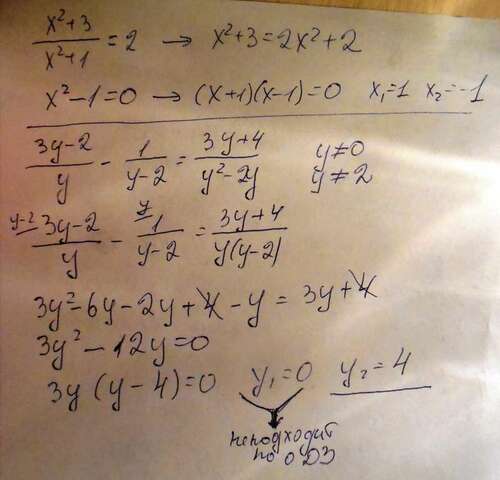 x²+3/x²+1 = 2 → x²+3=2x²+2
x²-1=0 → (x+1)(x-1)=0 x₁=1 x₂=-1
3y-2/y - 1/y-2 = 3y+4/y²-2y y≠0
y≠2
y-2 3y-2/y - y 1/y-2 = 3y+4/y(y-2)
3y²-6y-2y+4-y=3y+4
3y²-12y=0
3y(y-4)=0 y₁=0 y₂=4
неподходит
по ОДЗ